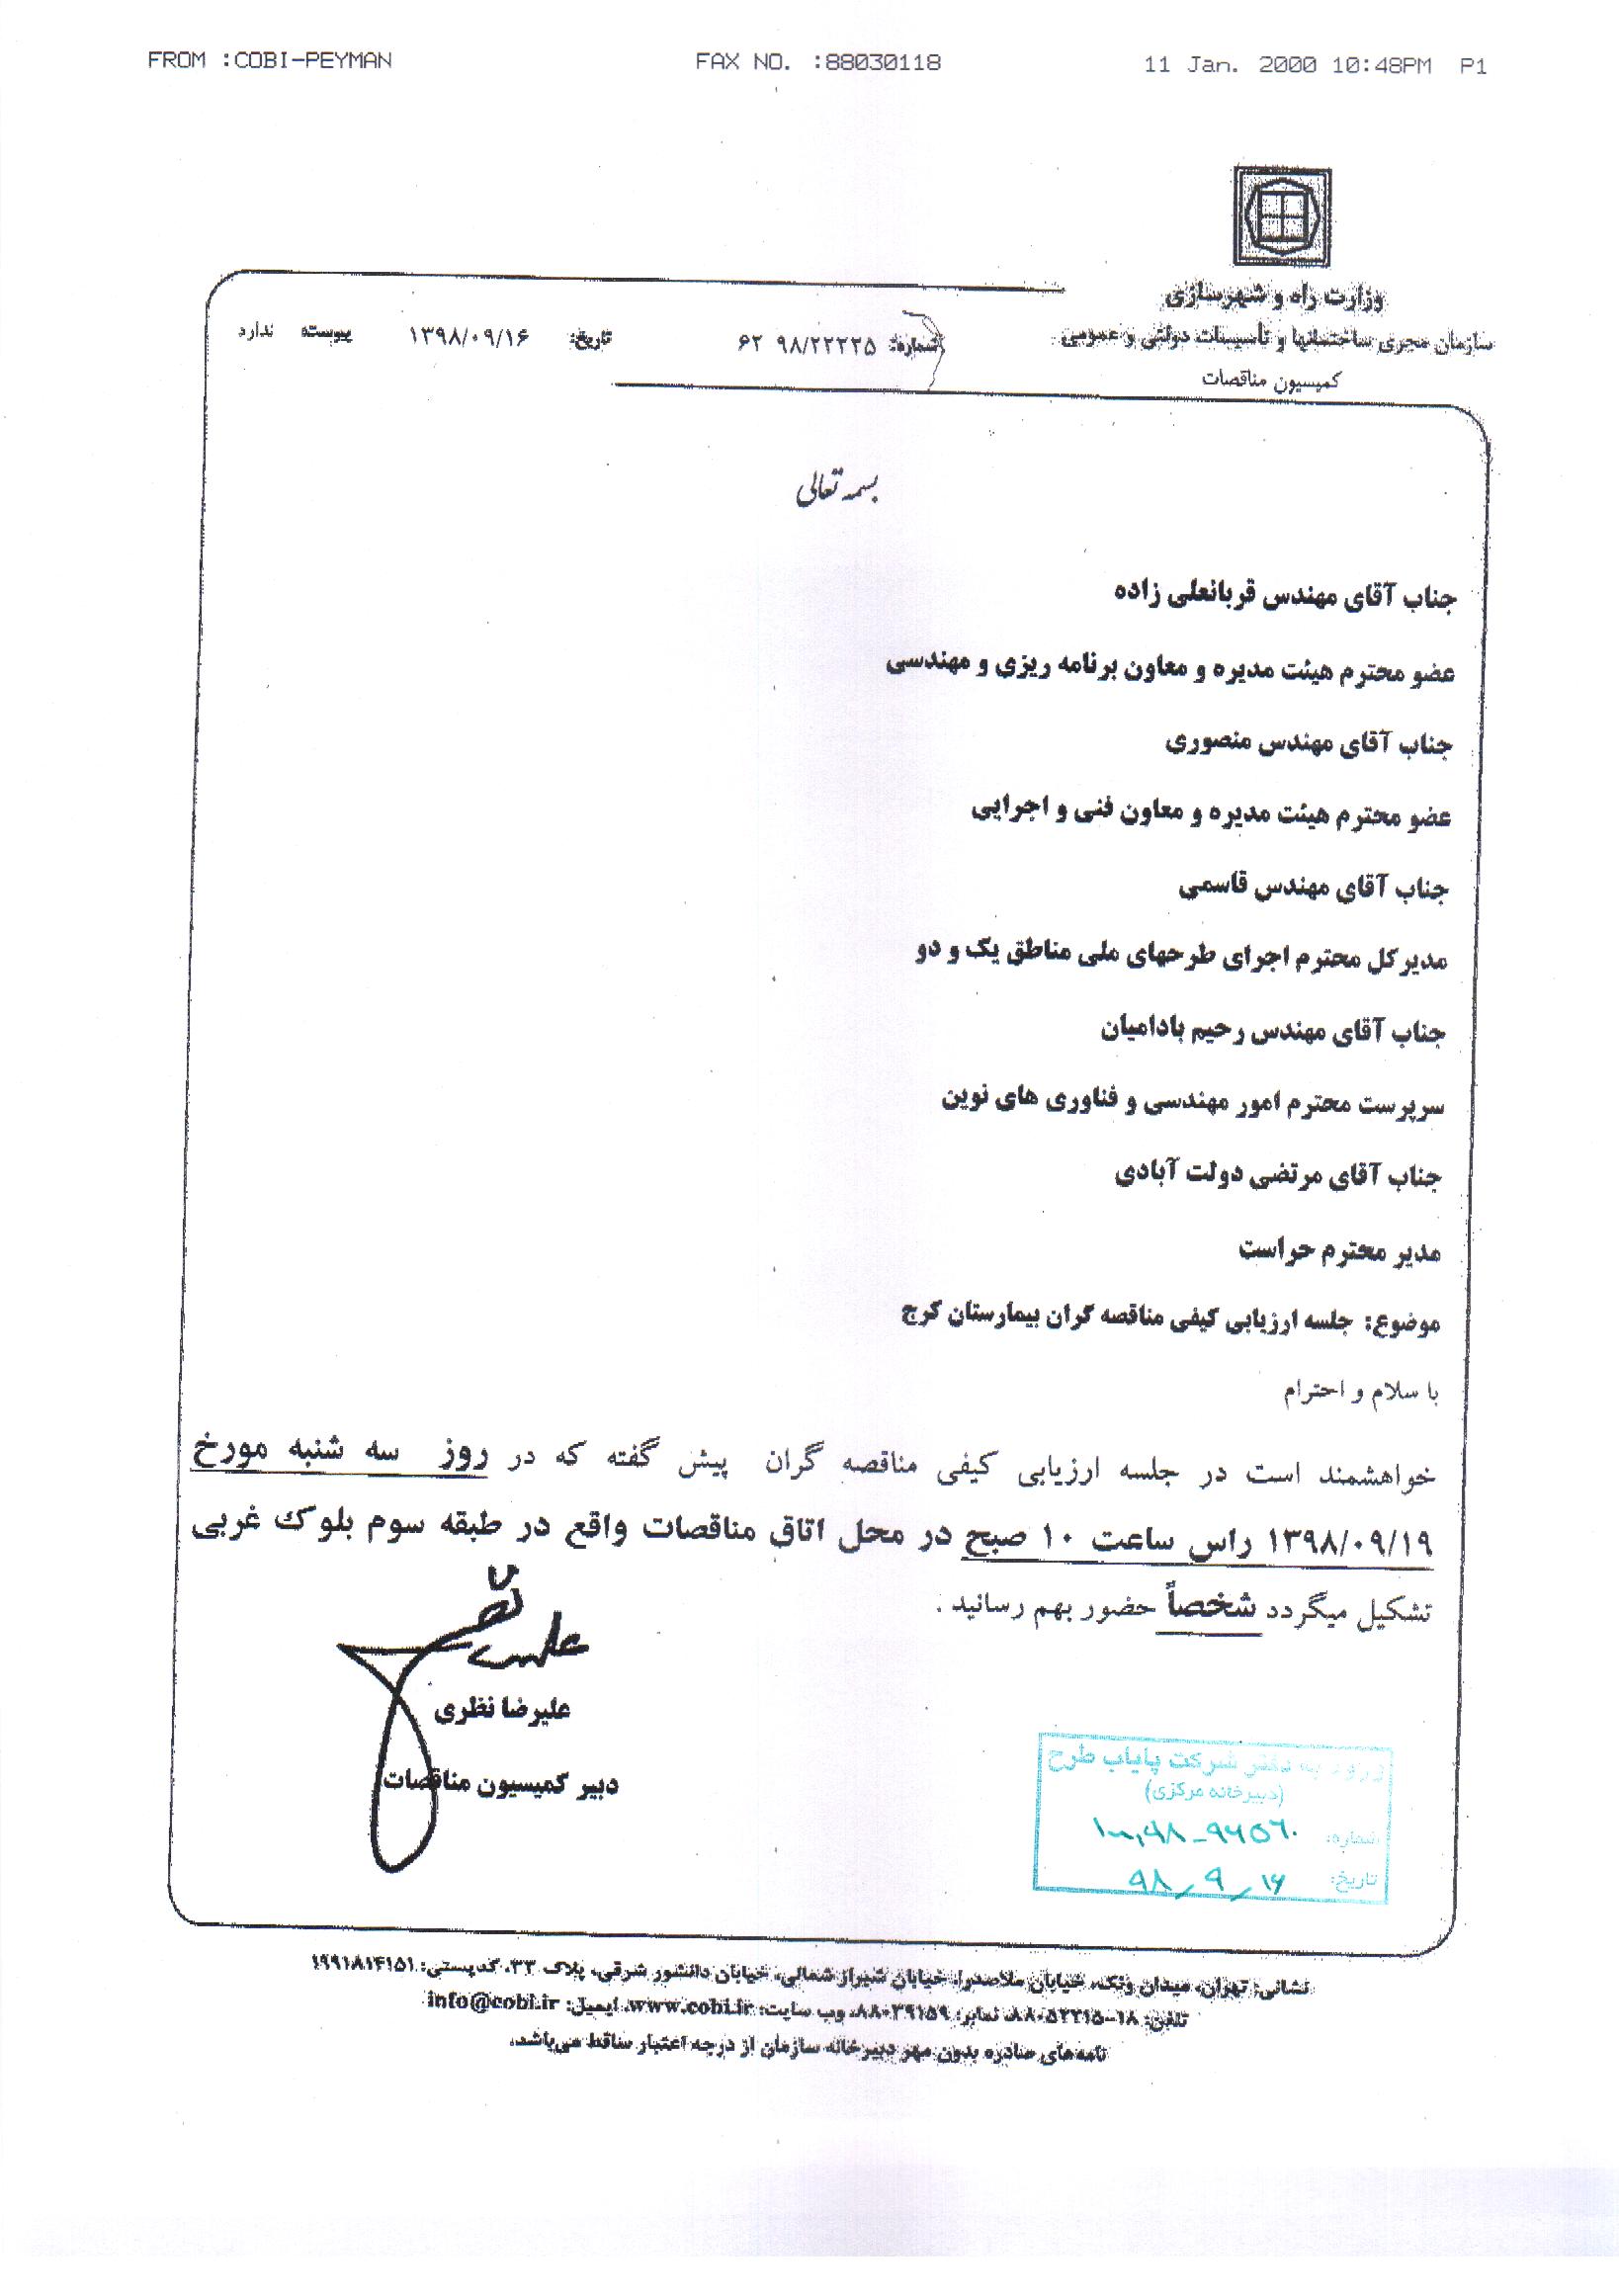 FROM :COBI-PEYMAN FAX NO. :88030118 11 Jan. 2000 10:48PM P1
وزارت راه و شهرسازی
سازمان مجری ساختمانها و تأسیسات دولتی و عمومی
کمیسیون مناقصات
شماره: ۹۸/۲۲۲۲۵ ۶۲ تاریخ: ۱۳۹۸/۰۹/۱۶ پیوسته ندارد
بسمه تعالی
جناب آقای مهندس قربانعلی زاده
عضو محترم هیئت مدیره و معاون برنامه ریزی و مهندسی
جناب آقای مهندس منصوری
عضو محترم هیئت مدیره و معاون فنی و اجرایی
جناب آقای مهندس قاسمی
مدیرکل محترم اجرای طرحهای ملی مناطق یک و دو
جناب آقای مهندس رحیم بادامیان
سرپرست محترم امور مهندسی و فناوری های نوین
جناب آقای مرتضی دولت آبادی
مدیر محترم حراست
موضوع: جلسه ارزیابی کیفی مناقصه گران بیمارستان کرج
با سلام و احترام
خواهشمند است در جلسه ارزیابی کیفی مناقصه گران پیش گفته که در روز سه شنبه مورخ
۱۳۹۸/۰۹/۱۹ راس ساعت ۱۰ صبح در محل اتاق مناقصات واقع در طبقه سوم بلوک غربی
تشکیل میگردد شخصاً حضور بهم رسانید .
علیرضا نظری
دبیر کمیسیون مناقصات
ورود به دفتر شرکت پایاب طرح
(دبیرخانه مرکزی)
شماره:
تاریخ: ۹۸/۹/۱۶
نشانی: تهران، میدان ونک، خیابان ملاصدرا، خیابان شیراز شمالی، خیابان دانشور شرقی، پلاک ۳۳، کدپستی: ۱۹۹۱۸۱۴۱۵۱
تلفن: ۱۸-۸۸۰۵۲۲۱۵، نمابر: ۸۸۰۳۹۱۵۹، وب سایت: www.cobi.ir، ایمیل: info@cobi.ir
نامه‌های صادره بدون مهر دبیرخانه سازمان از درجه اعتبار ساقط می‌باشد.